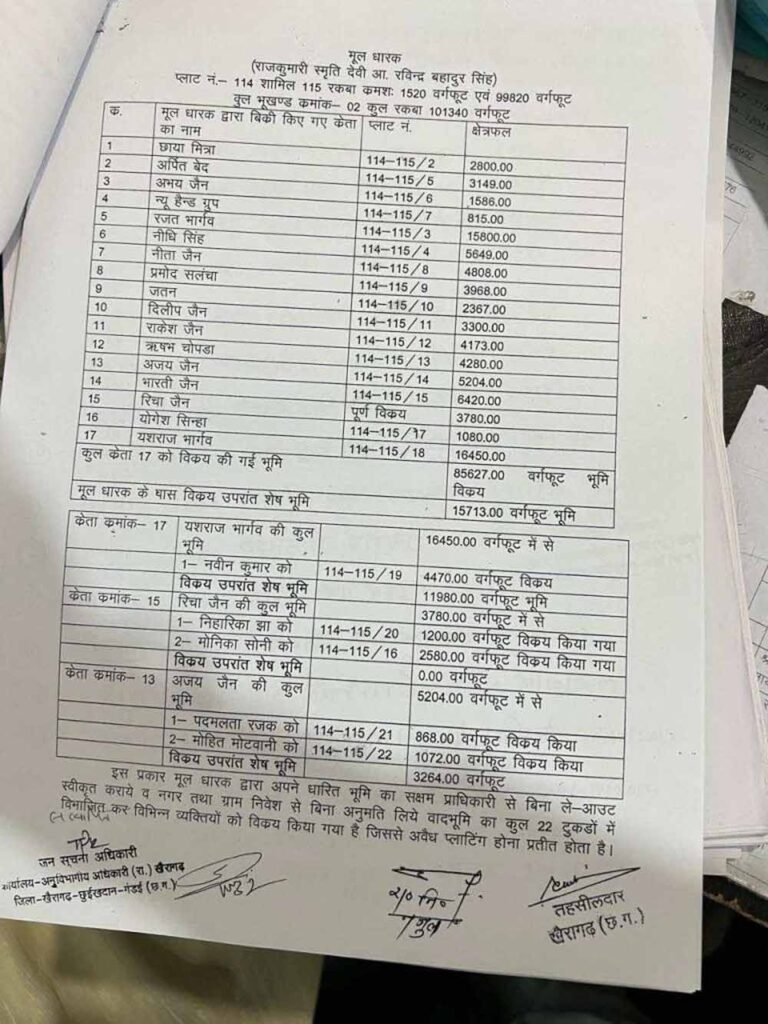 मूल धारक
(राजकुमारी स्मृति देवी आ. रविन्द्र बहादुर सिंह)
प्लाट नं.– 114 शामिल 115 रकबा कमशः 1520 वर्गफूट एवं 99820 वर्गफूट
कुल भूखण्ड कमांक– 02 कुल रकबा 101340 वर्गफूट
क. मूल धारक द्वारा बिकी किए गए केता का नाम प्लाट नं. क्षेत्रफल
1 छाया मित्रा 114–115/2 2800.00
2 अर्पित बेद 114–115/5 3149.00
3 अभय जैन 114–115/6 1586.00
4 न्यू हैन्ड ग्रुप 114–115/7 815.00
5 रजत भार्गव 114–115/3 15800.00
6 नीधि सिंह 114–115/4 5649.00
7 नीता जैन 114–115/8 4808.00
8 प्रमोद सलंचा 114–115/9 3968.00
9 जतन 114–115/10 2367.00
10 दिलीप जैन 114–115/11 3300.00
11 राकेश जैन 114–115/12 4173.00
12 ऋषभ चोपडा 114–115/13 4280.00
13 अजय जैन 114–115/14 5204.00
14 भारती जैन 114–115/15 6420.00
15 रिचा जैन पूर्ण विक्रय 3780.00
16 योगेश सिन्हा 114–115/17 1080.00
17 यशराज भार्गव 114–115/18 16450.00
कुल केता 17 को विक्रय की गई भूमि 85627.00 वर्गफूट भूमि विक्रय
मूल धारक के पास विक्रय उपरांत शेष भूमि 15713.00 वर्गफूट भूमि
केता कमांक– 17 यशराज भार्गव की कुल भूमि 16450.00 वर्गफूट में से
1– नवीन कुमार को 114–115/19 4470.00 वर्गफूट विक्रय
विक्रय उपरांत शेष भूमि 11980.00 वर्गफूट भूमि
केता कमांक– 15 रिचा जैन की कुल भूमि 3780.00 वर्गफूट में से
1– निहारिका झा को 114–115/20 1200.00 वर्गफूट विक्रय किया गया
2– मोनिका सोनी को 114–115/16 2580.00 वर्गफूट विक्रय किया गया
विक्रय उपरांत शेष भूमि 0.00 वर्गफूट
केता कमांक– 13 अजय जैन की कुल भूमि 5204.00 वर्गफूट में से
1– पदमलता रजक को 114–115/21 868.00 वर्गफूट विक्रय किया
2– मोहित मोटवानी को 114–115/22 1072.00 वर्गफूट विक्रय किया
विक्रय उपरांत शेष भूमि 3264.00 वर्गफूट
इस प्रकार मूल धारक द्वारा अपने धारित भूमि का सक्षम प्राधिकारी से बिना ले–आउट
स्वीकृत कराये व नगर तथा ग्राम निवेश से बिना अनुमति लिये वादभूमि का कुल 22 टुकडों में
विभाजित कर विभिन्न व्यक्तियों को विक्रय किया गया है जिससे अवैध प्लाटिंग होना प्रतीत होता है।
जन सूचना अधिकारी
कार्यालय–अनुविभागीय अधिकारी (रा.) खैरागढ़
जिला–खैरागढ़–छुईखदान–गंडई (छ.ग.)
रा० नि०
तहसीलदार
खैरागढ़ (छ.ग.)